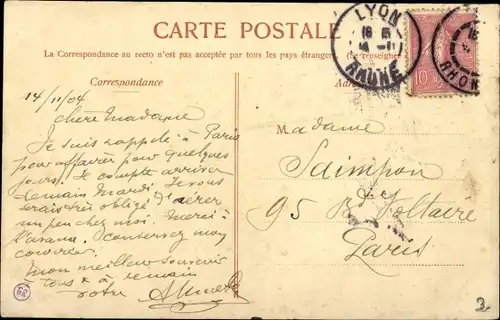 CARTE POSTALE
La Correspondance au recto n'est pas acceptée par tous les pays étrangers. (Se renseigner
Correspondance
LYON
RHONE
RHON
10
14/11/04
Chère Madame
Je suis rappelé à Paris
pour affaires pour quelques
jours. Je compte arriver
demain Mardi. Je vous
serais très obligé d'aérer
un peu chez moi. Merci à
l'avance, conservez mon
courrier.
Mon meilleur souvenir
à tous & à demain
votre
Madame
Saimpon
95 Bd Voltaire
Paris
3.-